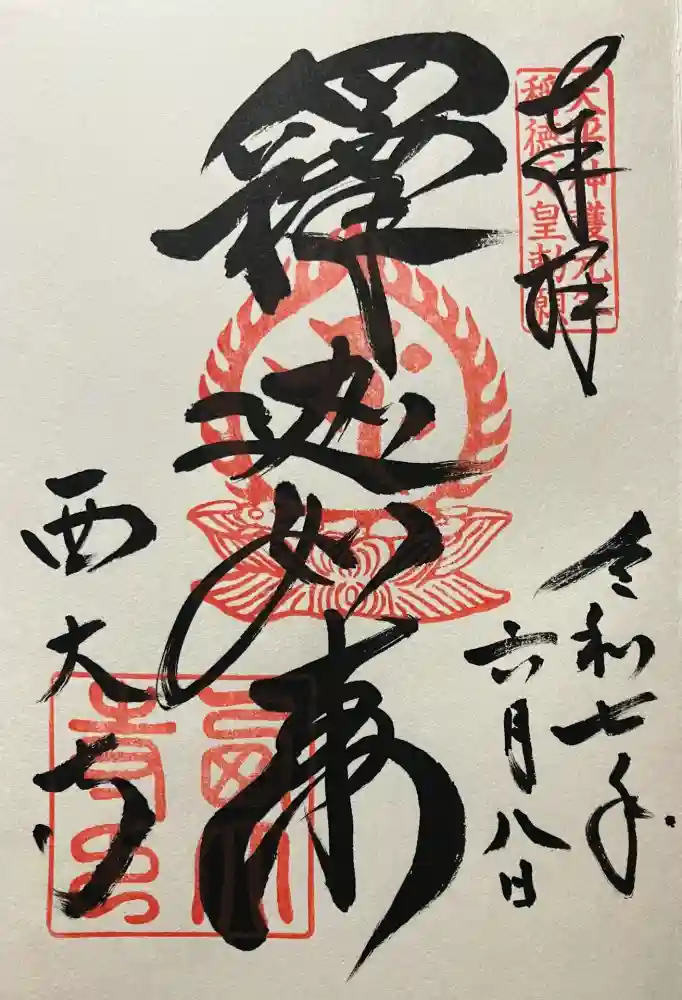 奉拝
天平神護元年
稱徳天皇勅願
令和七年
六月八日
釋迦如来
西大寺
西大寺印